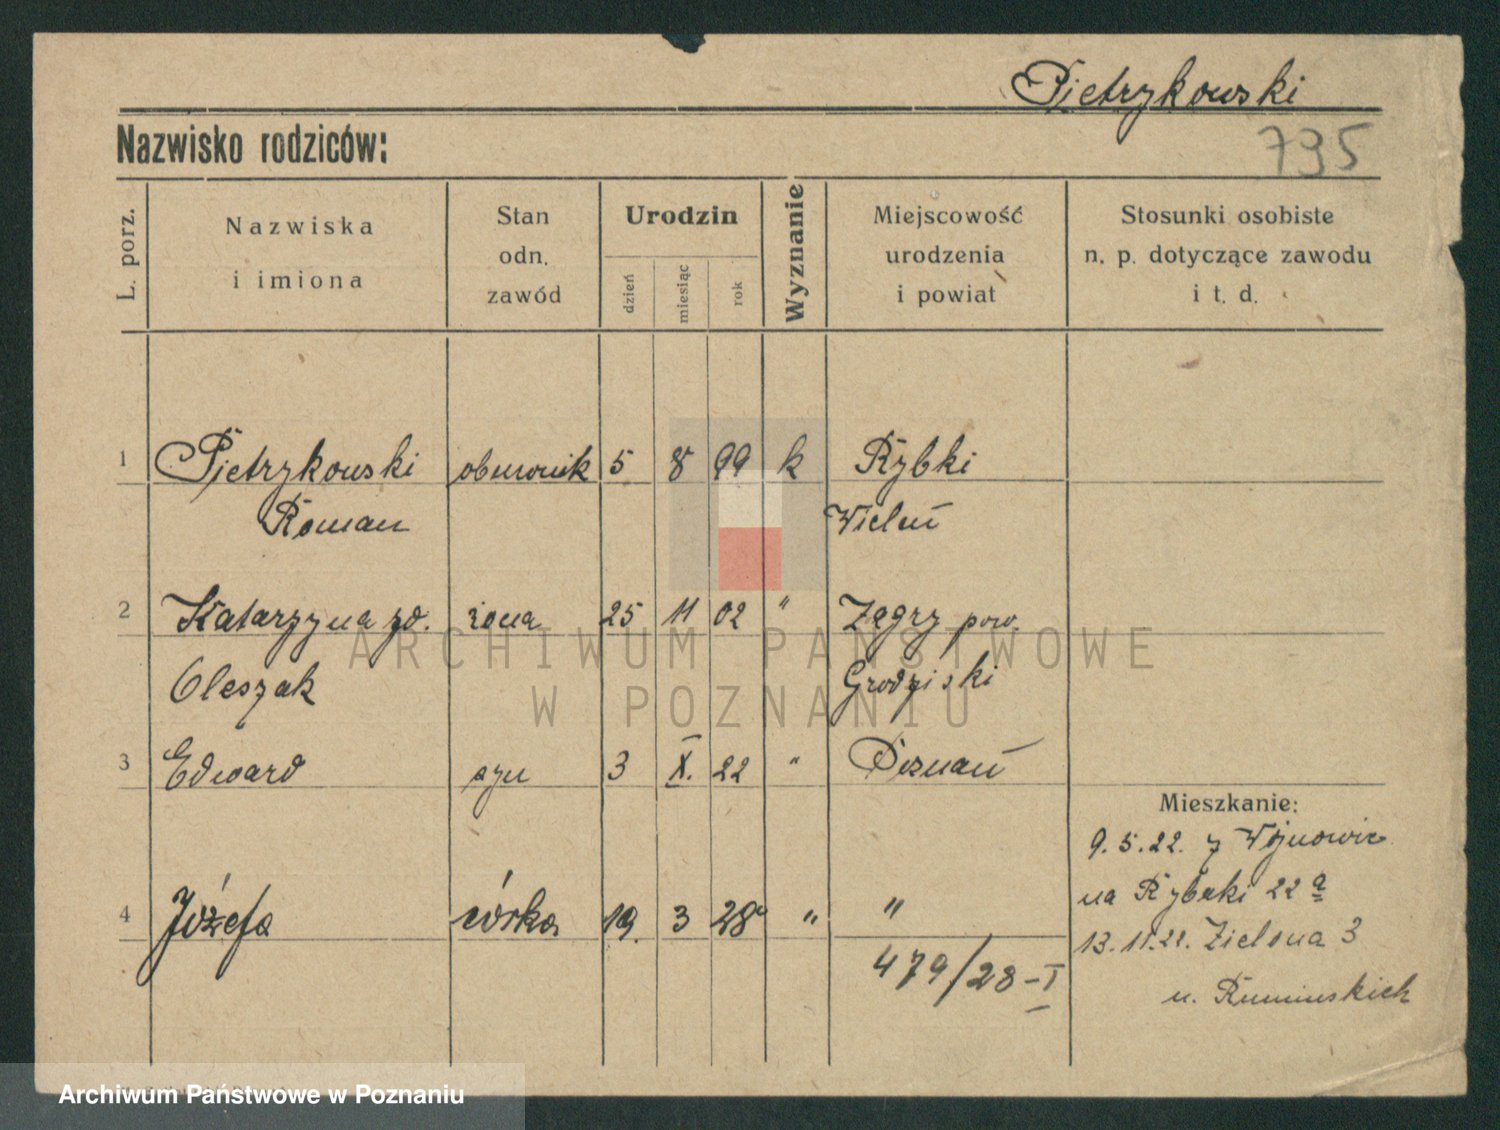 Pietrykowski
Nazwisko rodziców:
795
L. porz.
Nazwiska
i imiona
Stan
odn.
zawód
Urodzin
dzień
miesiąc
rok
Wyznanie
Miejscowość
urodzenia
i powiat
Stosunki osobiste
n. p. dotyczące zawodu
i t. d.
1 Pietrykowski obuwnik 5 8 99 k Rybki
Roman Wieluń
2 Katarzyna zd. żona 25 11 02 " pow.
Oleszak Grodziski
3 Edward syn 3 X. 22 " Poznań
Mieszkanie:
9.5.22. z
na Rybaki 22 a
4 Józefa córka 19. 3 28 " "
13.11.22. Zielona 3
479/28-I
u.
ARCHIWUM PAŃSTWOWE
W POZNANIU
Archiwum Państwowe w Poznaniu